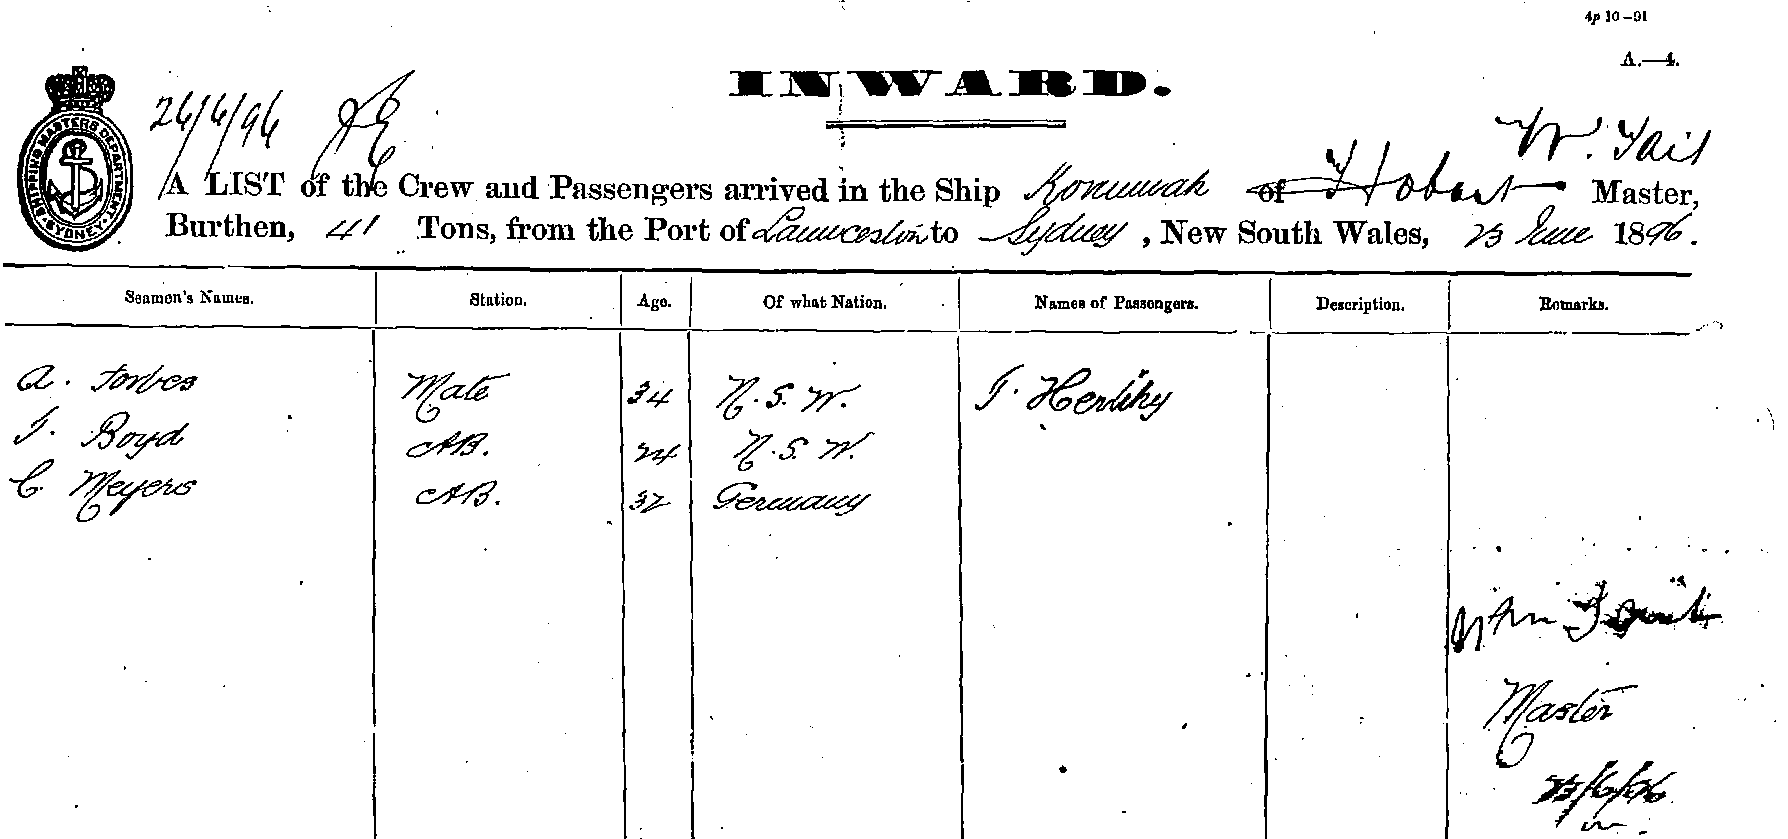 4p 10–91
A.—4.
INWARD.
SHIPPING MASTERS DEPARTMENT SYDNEY
26/6/96
W. Tait
A LIST of the Crew and Passengers arrived in the Ship of Hobart Master,
Burthen, 41 Tons, from the Port of Launceston to Sydney, New South Wales, 23 June 1896.
Seamen's Names. Station. Age. Of what Nation. Names of Passengers. Description. Remarks.
A. Forbes Mate 34 N.S.W. T. Herlihy
T. Boyd AB. 24 N.S.W.
C Meyers AB. 32 Germany
Master
23/6/96